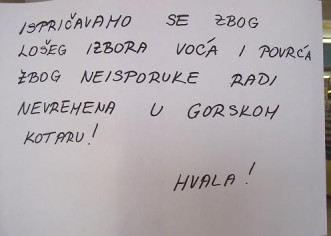 ISPRIČAVAMO SE ZBOG
LOŠEG IZBORA VOĆA I POVRĆA
ZBOG NEISPORUKE RADI
NEVREMENA U GORSKOM
KOTARU!
HVALA!